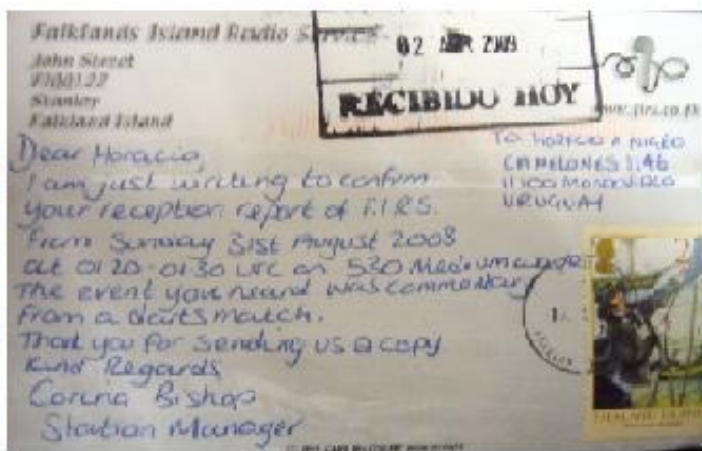 Falklands Island Radio Service
John Street
FIQQ 1ZZ
Stanley
Falkland Island
02 APR 2009
RECIBIDO HOY
www.firs.co.fk
To HORACIO A NIGRO
11100 MONTEVIDEO
URUGUAY
Dear Horacio,
I am just writing to confirm
your reception report of F.I.R.S.
from Sunday 31st August 2008
at 0120-0130 UTC on 530 Medium
The event you heard was commentary
from a darts match.
Thank you for sending us a copy
Kind Regards
Corina Bishop
Station Manager
FALKLAND ISLANDS